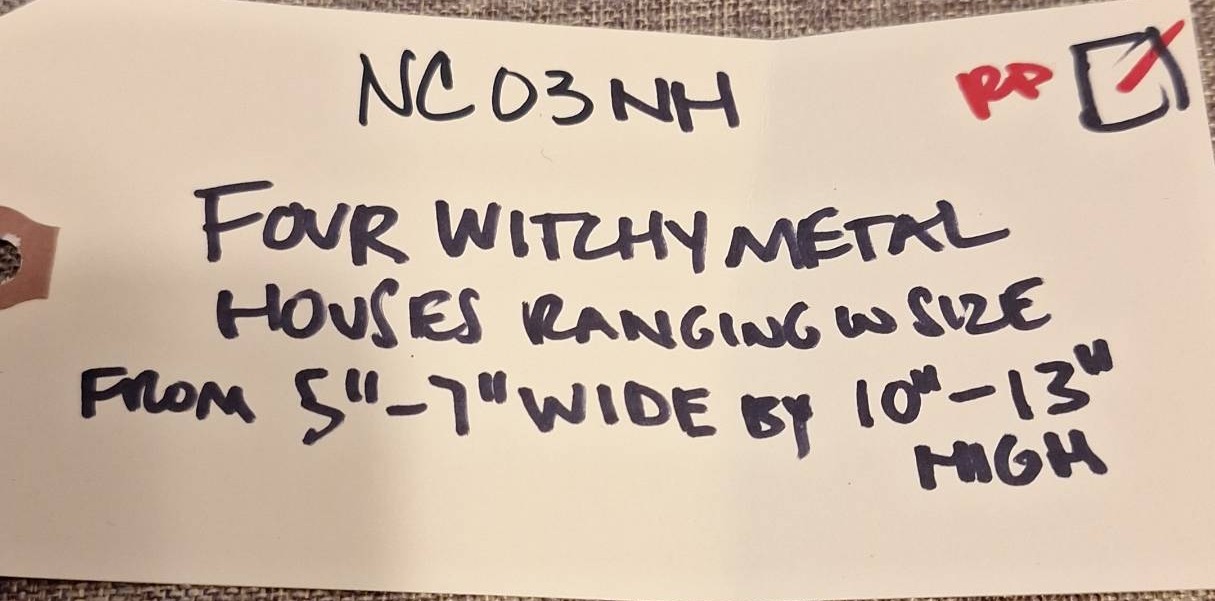 NC03NH
RP
FOUR WITCHY METAL
HOUSES RANGING IN SIZE
FROM 5"-7" WIDE BY 10"-13"
HIGH